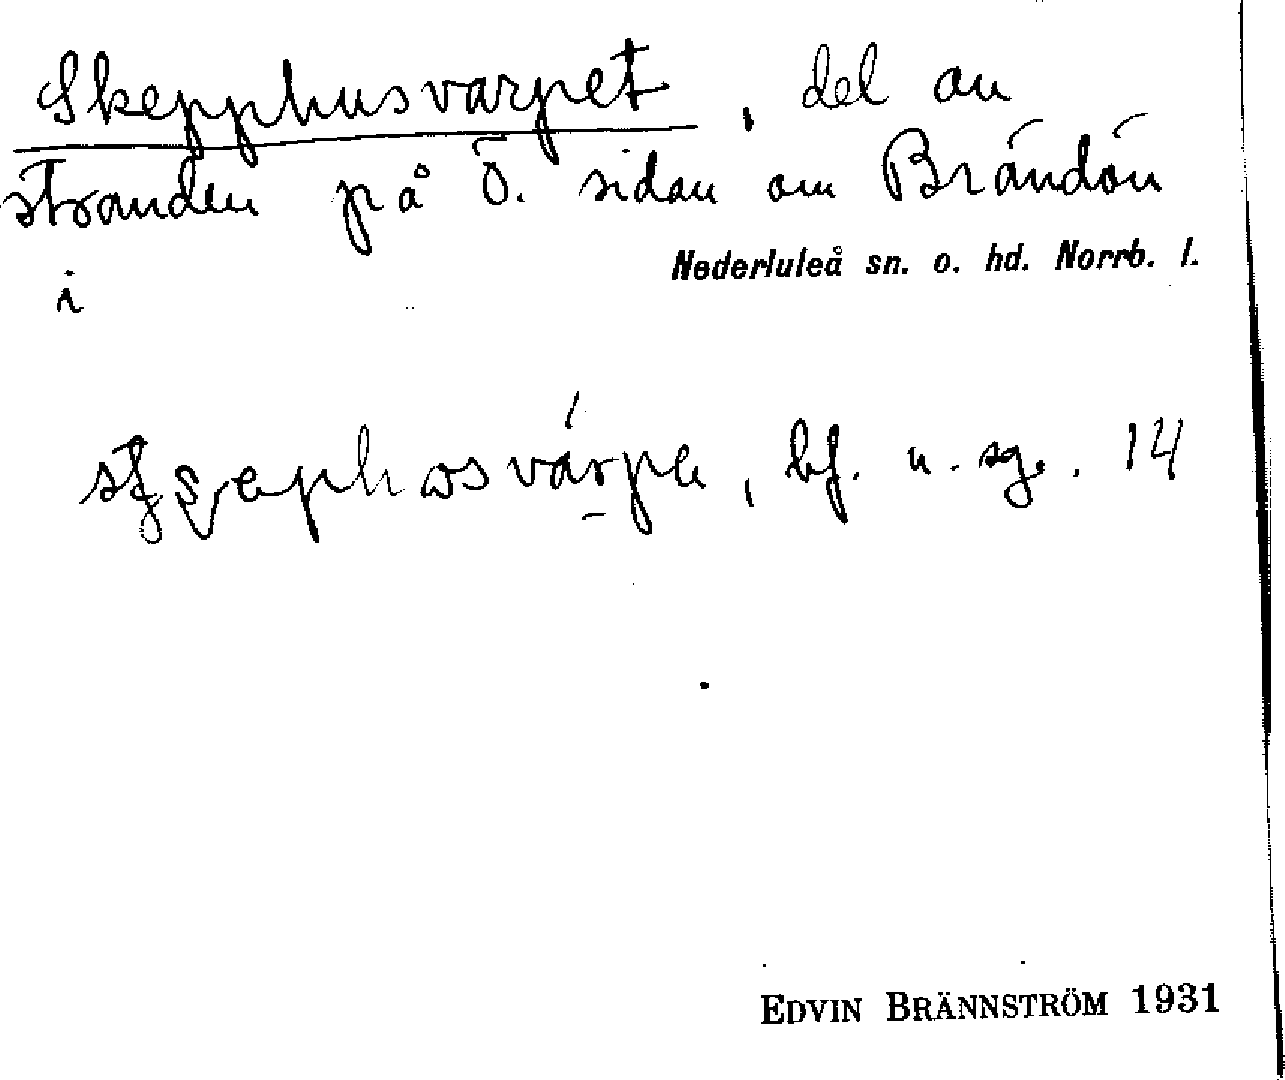 Skepphusvarpet, del av
stranden på Ö. sidan om Brändön
Nederluleå sn. o. hd. Norrb. l.
i
bf. n. sg. 14
EDVIN BRÄNNSTRÖM 1931